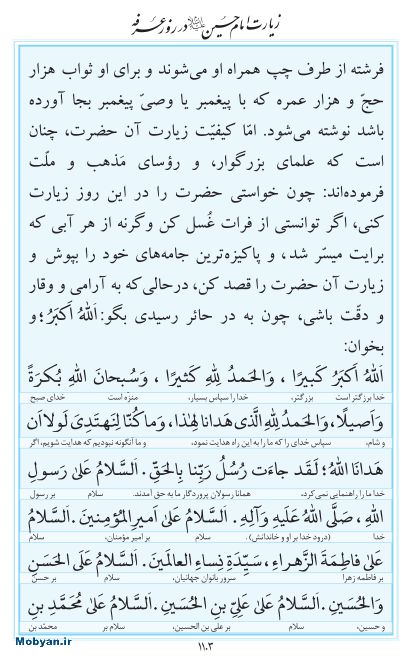 زیارت امام حسین علیه‌السلام در روز عرفه
فرشته از طرف چپ همراه او می‌شوند و برای او ثواب هزار
حجّ و هزار عمره که با پیغمبر یا وصیّ پیغمبر بجا آورده
باشد نوشته می‌شود. امّا کیفیّت زیارت آن حضرت، چنان
است که علمای بزرگوار، و رؤسای مَذهب و ملّت
فرموده‌اند: چون خواستی حضرت را در این روز زیارت
کنی، اگر توانستی از فرات غُسل کن وگرنه از هر آبی که
برایت میسّر شد، و پاکیزه‌ترین جامه‌های خود را بپوش و
زیارت آن حضرت را قصد کن، درحالی‌که به آرامی و وقار
و دقّت باشی، چون به در حائر رسیدی بگو: اَللهُ اَکبَرُ؛ و
بخوان:
اَللهُ اَکبَرُ کَبیرًا ، وَالحَمدُ لِلّٰهِ کَثیرًا ، وَسُبحانَ اللهِ بُکرَةً
خدا بزرگتر است بزرگتر، خدا را سپاس بسیار، منزّه است خدای صبح
وَاَصیلًا، وَالحَمدُ لِلّٰهِ الَّذی هَدانا لِهٰذا، وَما کُنّا لِنَهتَدِیَ لَولا اَن
و شام، سپاس خدای را که ما را به این راه هدایت نمود، و ما آنگونه نبودیم که هدایت شویم، اگر
هَدانَا اللهُ؛ لَقَد جاءَت رُسُلُ رَبِّنا بِالحَقِّ. اَلسَّلامُ عَلیٰ رَسولِ
خدا ما را راهنمایی نمی‌کرد، همانا رسولان پروردگار ما به حق آمدند. سلام بر رسول
اللهِ ، صَلَّی اللهُ عَلَیهِ وَآلِهِ . اَلسَّلامُ عَلیٰ اَمیرِ المُؤمِنینَ . اَلسَّلامُ
خدا (درود خدا بر او و خاندانش). سلام بر امیر مؤمنان، سلام
عَلیٰ فاطِمَةَ الزَّهراءِ، سَیِّدَةِ نِساءِ العالَمینَ . اَلسَّلامُ عَلَی الحَسَنِ
بر فاطمه زهرا سرور بانوان جهانیان، سلام بر حسن
وَالحُسَینِ . اَلسَّلامُ عَلیٰ عَلِیِّ بنِ الحُسَینِ. اَلسَّلامُ عَلیٰ مُحَمَّدِ بنِ
و حسین، سلام بر علی بن الحسین، سلام بر محمّد بن
۱۱۰۳
Mobyan.ir